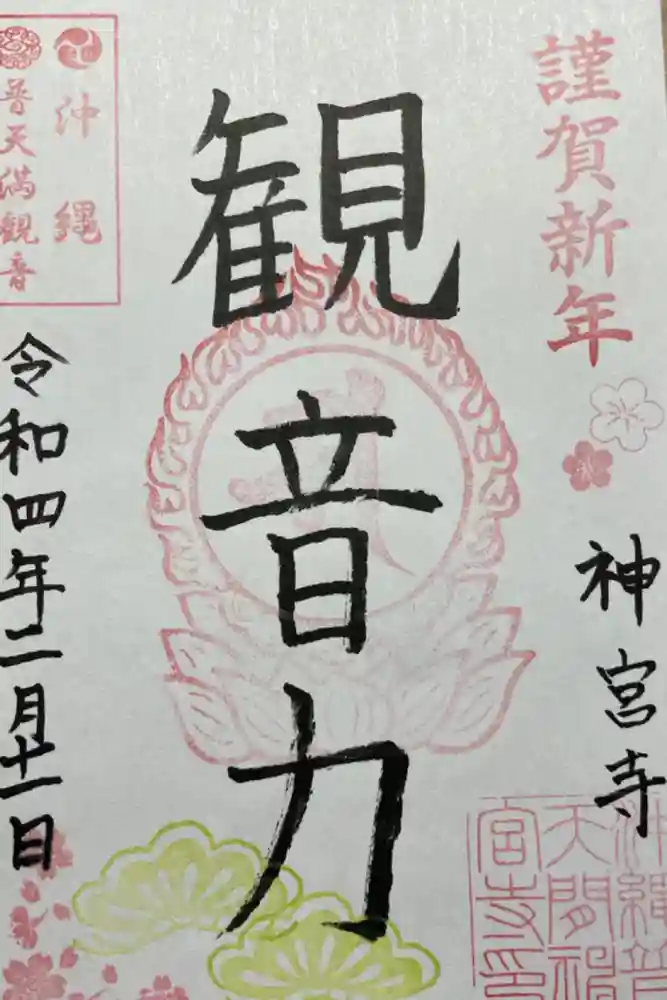 謹賀新年
神宮寺
観音力
沖縄
普天満観音
令和四年二月十一日